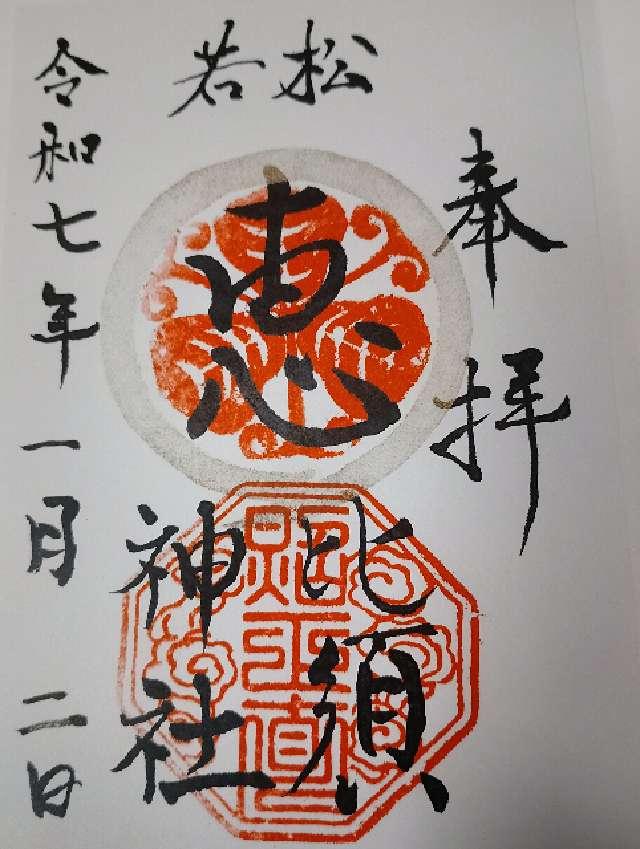 奉拝
若松
恵比須
神社
令和七年一月二日